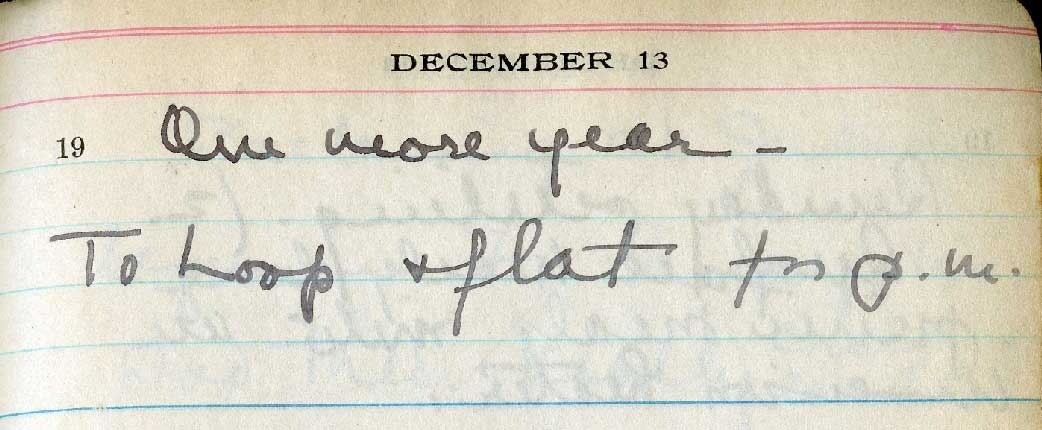 DECEMBER 13
19 One more year –
To Loop & flat for p.m.